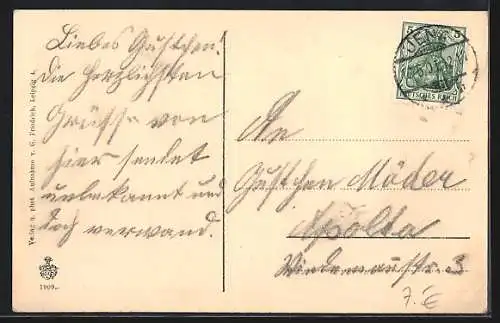 Liebes Gustchen!
Die herzlichsten
Grüsse von
hier sendet
unbekannt und
doch verwand.
Verlag u. phot. Aufnahme v. G. Friedrich, Leipzig
1909.
JENA
5 5
DEUTSCHES REICH
An
Gustchen Möder
Apolda
3
7.€